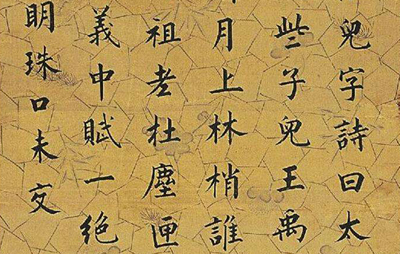 兒字詩曰太
些子兒王禹
月上林梢誰
祖老杜塵匣
義中賦一絕
明珠口未交